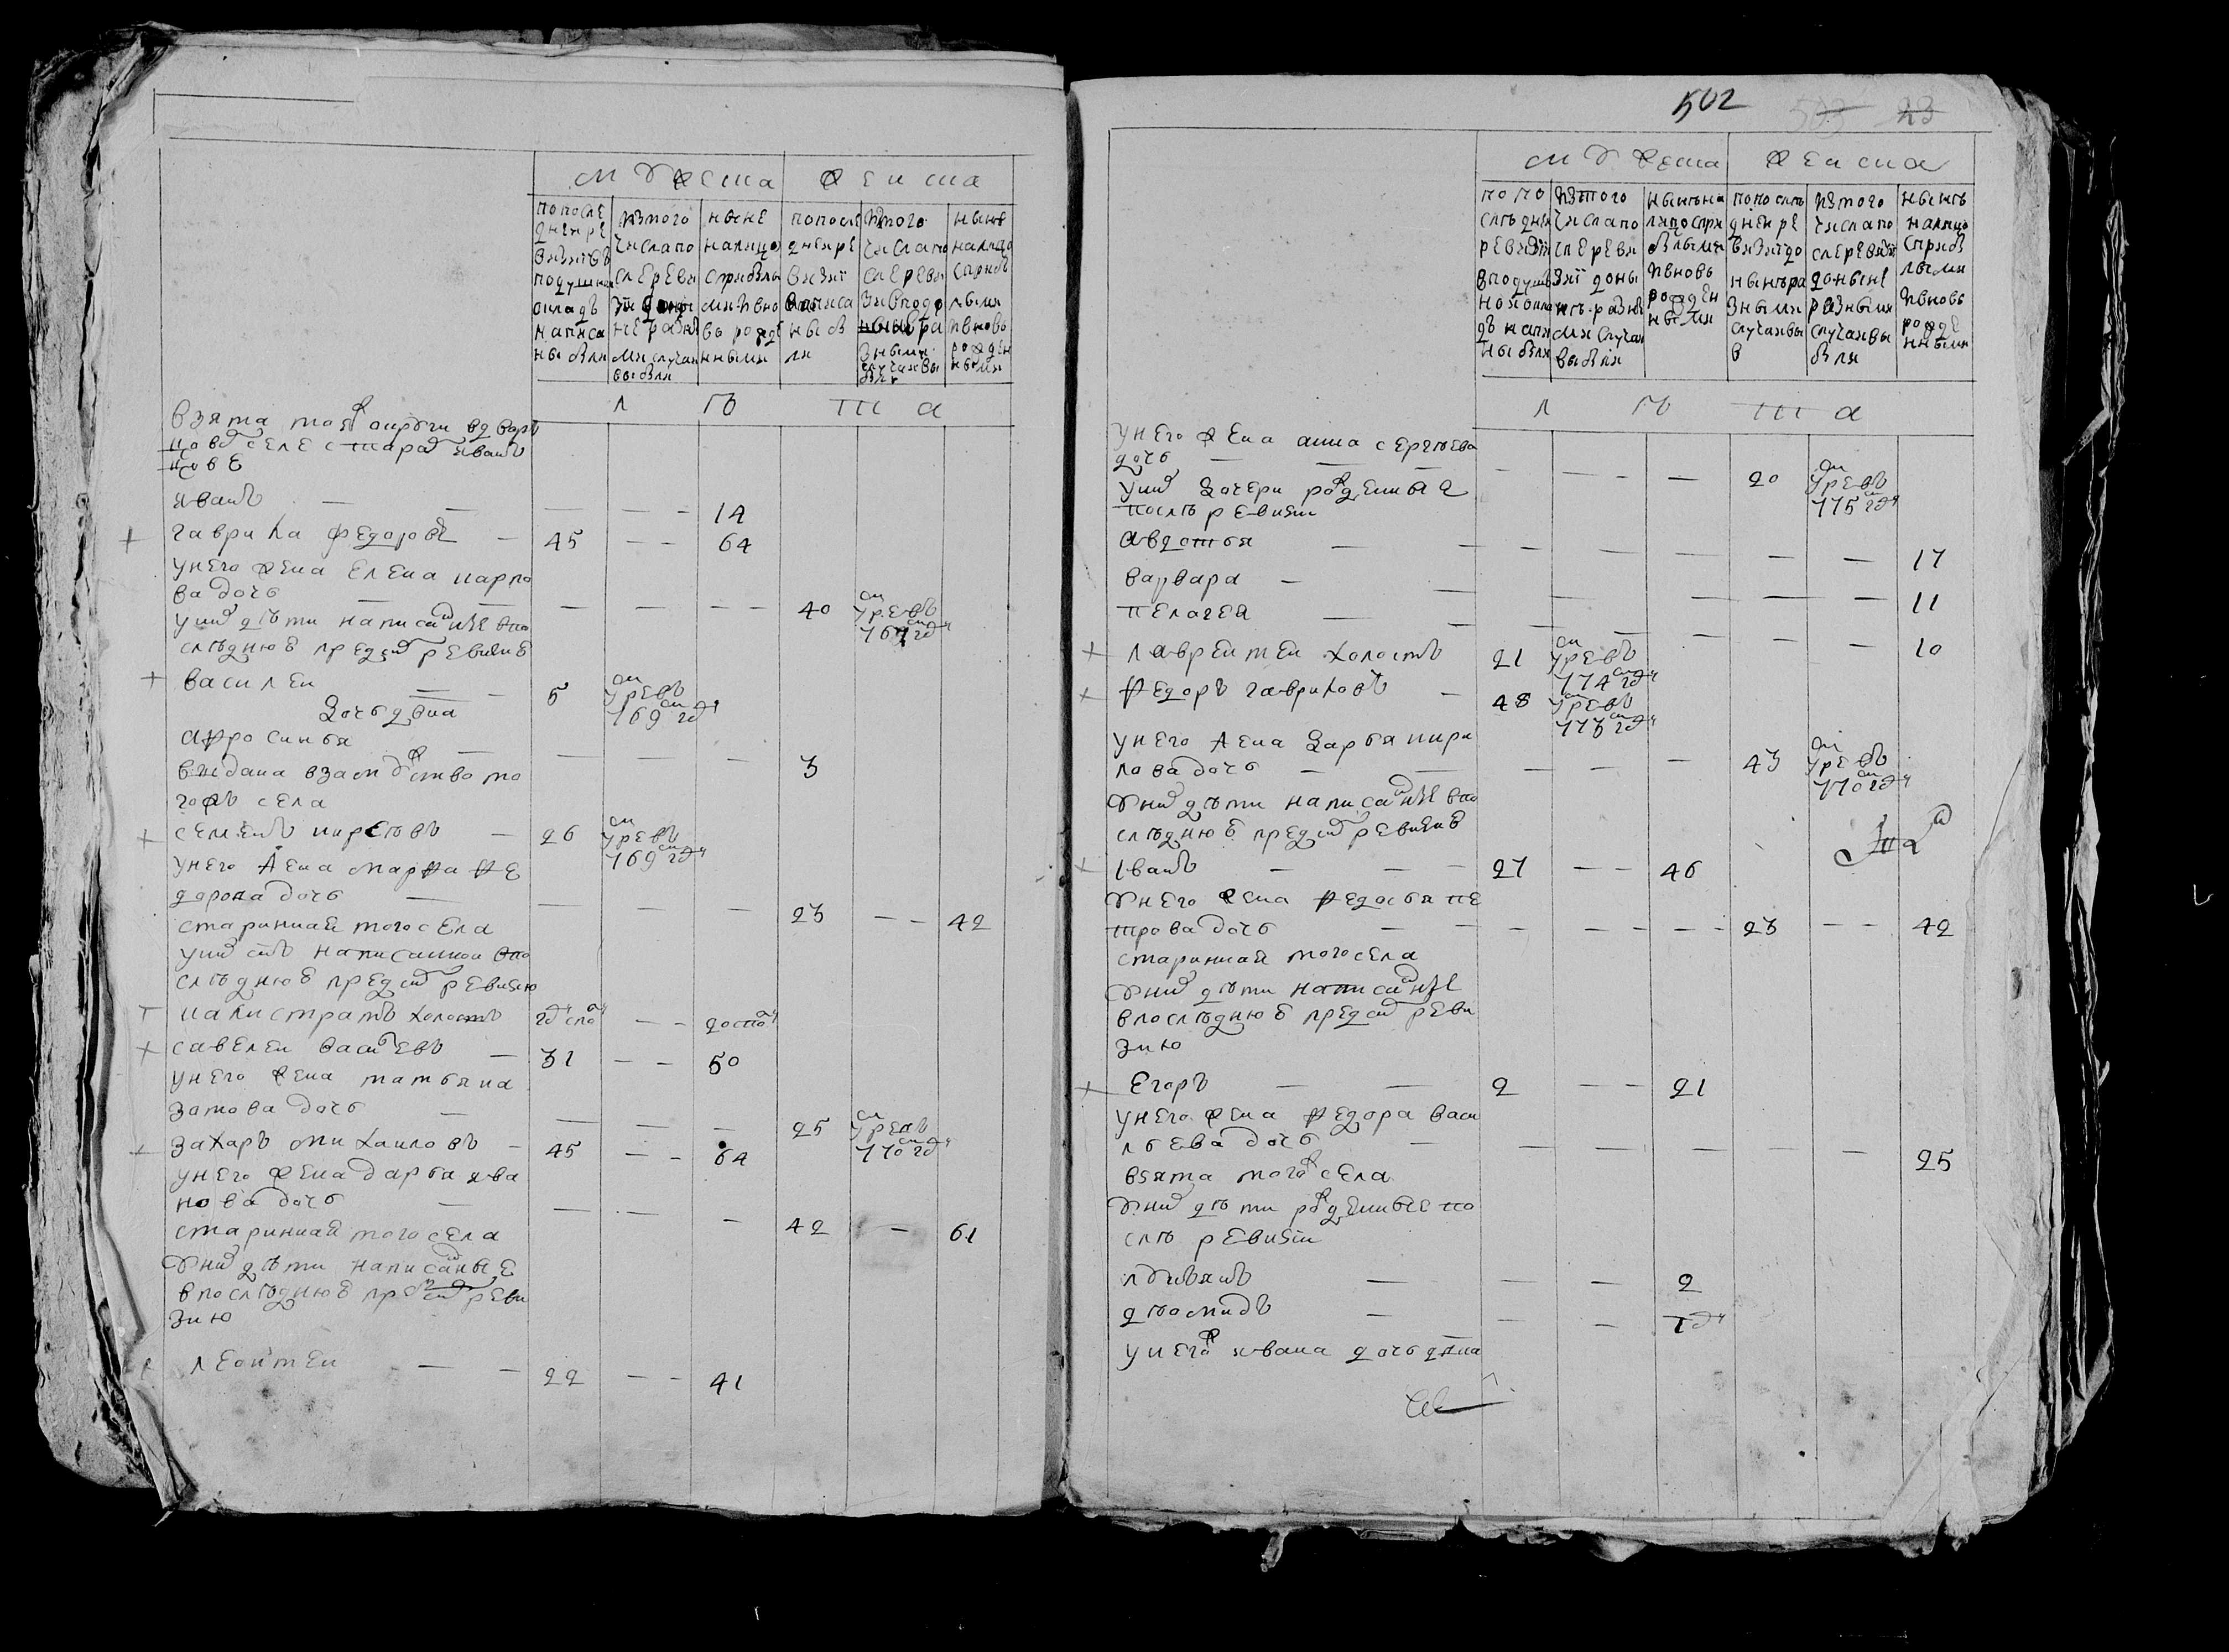 мужеска женска
пописле дней ре визиювъ подушной окладъ написа ны были
изтого числапо слереви зiи донынѣ разны ми случаи выбыли
ныне налицо сприбылы ми ивно вь рожде нными
попосле дней ре визiи написа ны были
изтого числапо слереви зiи разными случаи вы были
нынѣ налицо сприбы лыми ивновь рожден ными
лѣта
взята тояж округи вдворъ
цовѣ селе старо ивань
цове
иванъ — — — — 14
гаврила федоровъ — 45 — 64
унего жена елена карпо
ва дочь — — — 40 умре въ 767м гду
униχ дѣти написаные впо
следнюю предсим ревизию
василеи — 5 умре въ 769м гду
дочь девка
афросинья — — — — 3
выдана взамужство то
гожъ села
семенъ киреевъ — 26 умре въ 769м гду
унего жена марфа фе
дорова дочь — — — — 23 — 42
стариннай того села
униχ снъ написанной впо
следнюю предсим ревизию
калистратъ холостъ
савелеи васильевъ — 31 — 50
унего жена татьяна
зотова дочь — — — — 25 умре въ 770м гду
захаръ михаиловъ — 45 — 64
унего жена дарья ива
нова дочь — — — — 42 — 61
стариннай того села
униχ дѣти написаные
впоследнюю предсим реви
зию
леонтеи — — 22 — 41
502
503 23
мужеска женска
попо следней ревизiи вподушь ной окла дъ напи ны были
изтого числапо слереви зiи доны нѣ разны ми случаи выбыли
нынѣ на лицо спри былыми ивновь рожден ными
попослѣ дней ре визiи до нынѣ ра зными случаи вы
изтого числапо слеревизiи донынѣ разными случаи вы были
нынѣ налицо сприбы лыми ивновь рожде нными
лѣта
унего жена анна сергеева
дочь — — — — 20 умре въ 775м гду
униχ дочери рожденныя
послѣ ревизiи
авдотья — — — — — — 17
варвара — — — — — 11
пелагея — — — — — 10
лаврентеи холостъ 21 умре въ 774м гду
федоръ гавриловъ — 48 умре въ 773м гду
унего жена дарья кири
лова дочь — — — — 43 умре въ 770м гду
униχ дѣти написаные впо
следнюю предсим ревизию
иванъ — — 27 — 46
унего жена федосья пе
трова дочь — — — — 23 — 42
стариннай того села
униχ дѣти написаные
впоследнюю предсим реви
зию
егоръ — — 2 — 21
унего жена федора васи
льева дочь — — — — — 25
взята тогож села
униχ дѣти рожденные по
слѣ ревизiи
лукьянъ — — — 2
деомидъ — — — 1 гду
унегож ивана дочь девка